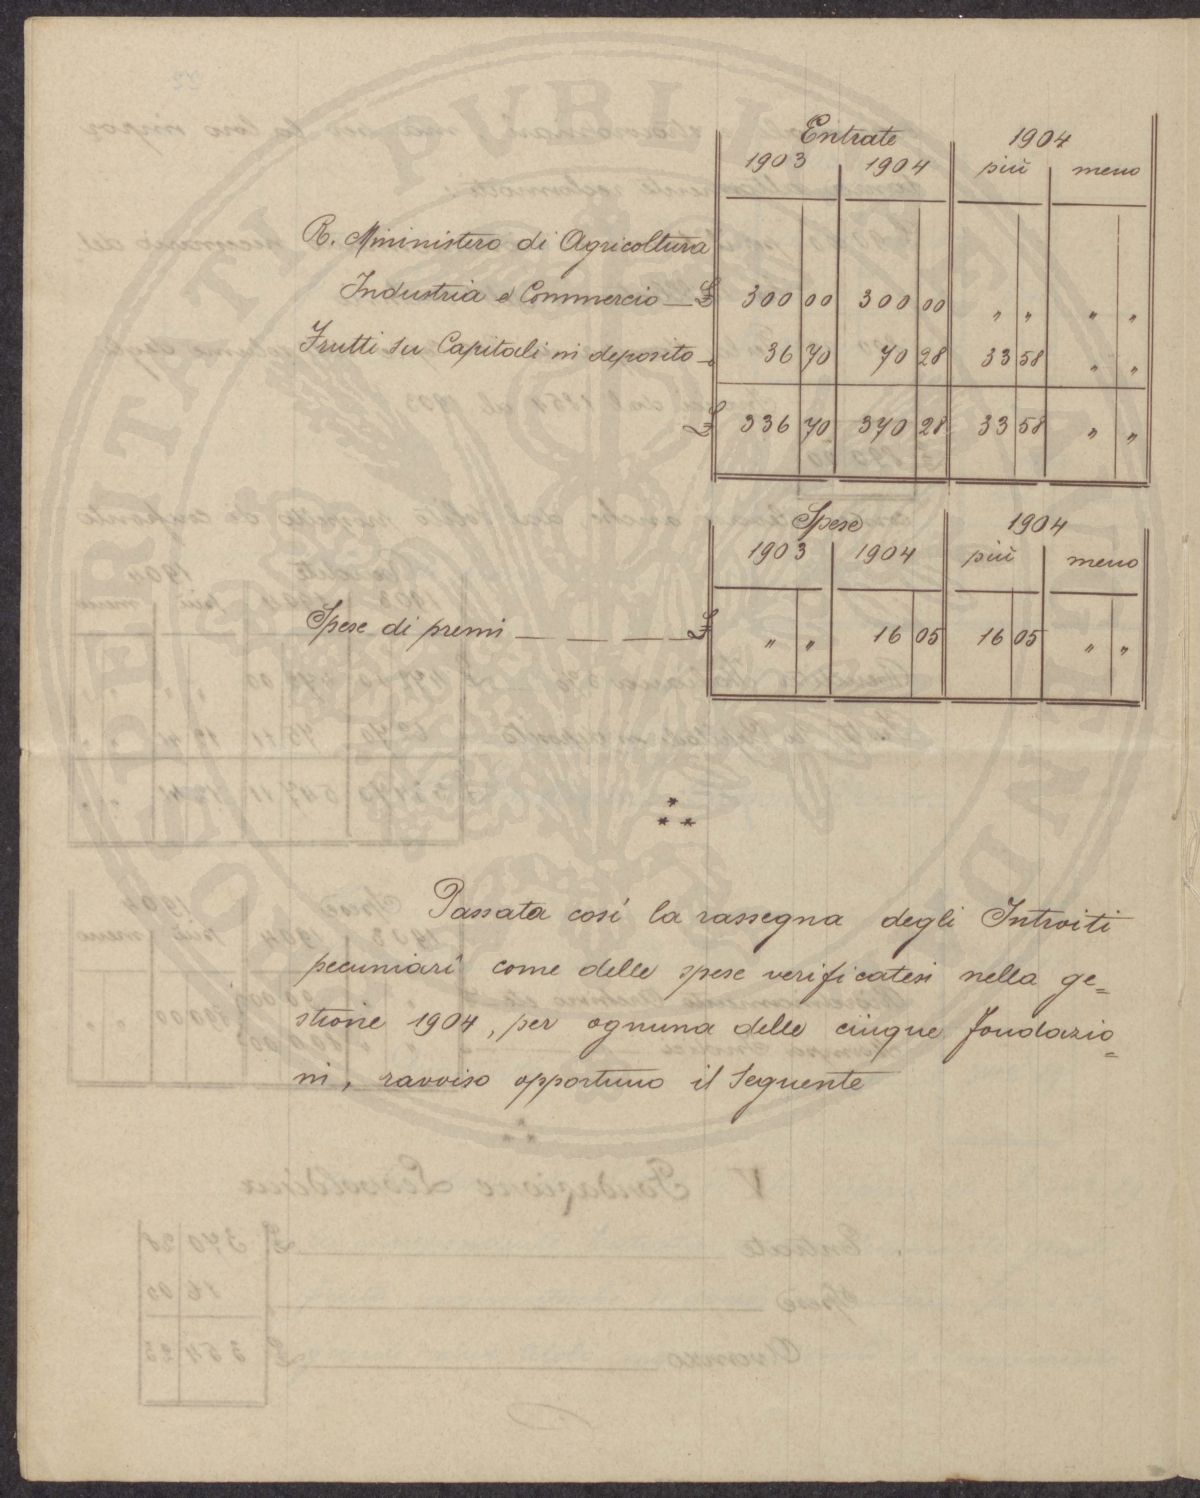 Entrate 1904
1903 1904 più meno
R. Mininistero di Agricoltura
Industria e Commercio — £ 300 00 300 00 „ „ „ „
Frutti su Capitali in deposito - „ 36 70 70 28 33 58 „ „
£ 336 70 370 28 33 58 „ „
Spese 1904
1903 1904 più meno
Spese di premi — — — — £ „ „ 16 05 16 05 „ „
Passata così la rassegna degli Introiti
pecuniarî come delle spese verificatesi nella ge=
stione 1904, per ognuna delle cinque fondazio=
ni, ravviso opportuno il seguente